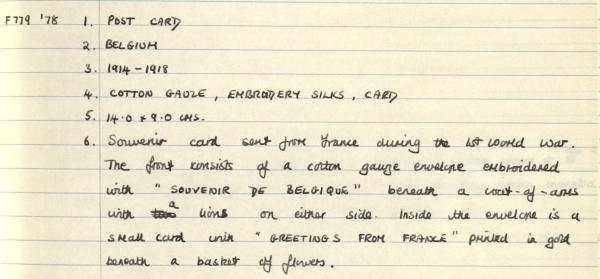 F779 '78 1. POST CARD
2. BELGIUM
3. 1914-1918
4. COTTON GAUZE, EMBROIDERY SILKS, CARD
5. 14.0 x 9.0 CMS.
6. Souvenir card sent from France during the 1st World War.
The front consists of a cotton gauze envelope embroidered
with "SOUVENIR DE BELGIQUE" beneath a coat-of-arms
with a lions on either side. Inside the envelope is a
small card with "GREETINGS FROM FRANCE" printed in gold
beneath a basket of flowers.